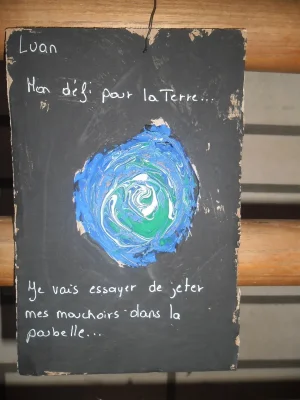 Luan
Mon défi pour la Terre...
Je vais essayer de jeter
mes mouchoirs dans la
poubelle...